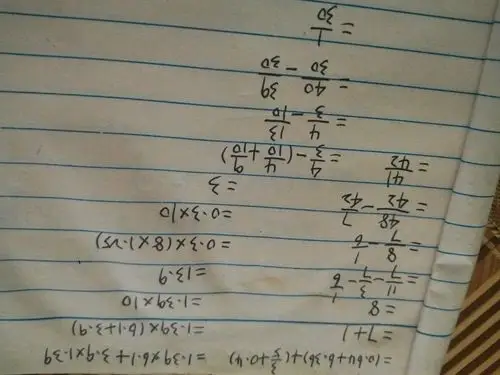 =(0.64+6.36)+(3/5+0.4)
=7+1
=8
=11/7-3/7-1/6
=8/7-1/6
=48/42-7/42
=41/42
=1.39×6.1+3.9×1.39
=1.39×(6.1+3.9)
=1.39×10
=13.9
=0.3×(8×1.25)
=0.3×10
=3
=4/3-(4/10+9/10)
=4/3-13/10
=40/30-39/30
=1/30